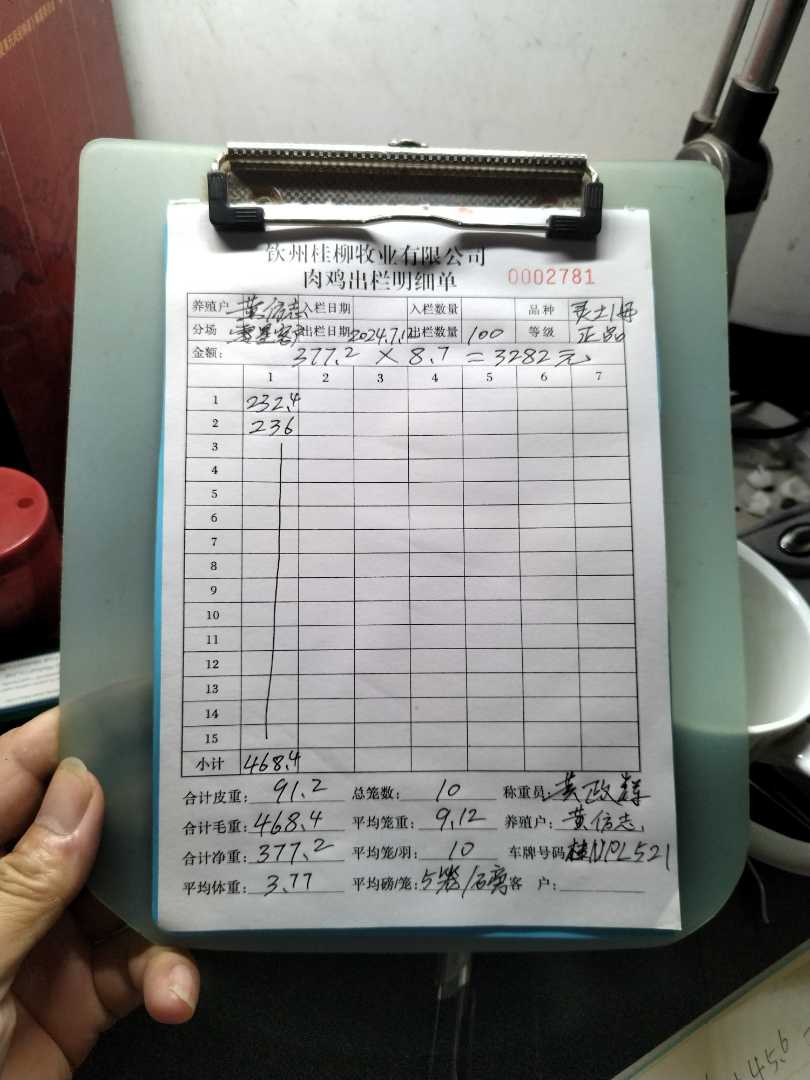 钦州桂柳牧业有限公司
肉鸡出栏明细单 0002781
养殖户 黄信志 入栏日期 入栏数量 品种 灵土1号
分场 零星客户 出栏日期 2024.7.12 出栏数量 100 等级 正品
金额: 377.2 × 8.7 = 3282元
1 2 3 4 5 6 7
1 232.4
2 236
3
4
5
6
7
8
9
10
11
12
13
14
15
小计 468.4
合计皮重: 91.2 总笼数: 10 称重员: 黄政
合计毛重: 468.4 平均笼重: 9.12 养殖户: 黄信志
合计净重: 377.2 平均笼/羽: 10 车牌号码 桂NPL521
平均体重: 3.77 平均磅/笼: 5笼/磅 客户:
456